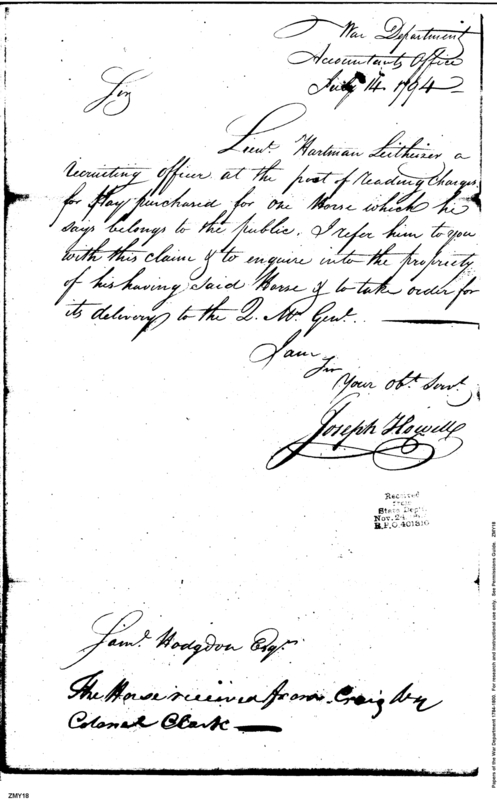 War Department
Accountants Office
July 14. 1794
Sir
Lieut. Hartman Leitheizer a
recruiting officer at the post of reading Charges
for Hay purchased for one Horse which he
says belongs to the public. I refer him to you
with this claim & to enquire into the propriety
of his having said Horse & to take order for
its delivery to the Q. Mr. Genl.
I am
Sir
Your Obt. Servt.
Joseph Howell
Received
from
State Dept.
Nov. 24
R.P.O. 401516
Saml. Hodgdon Esqr.
The Horse received from Craig by
Colonel Clark
Papers of the War Department 1784-1800. For research and instructional use only. See Permissions Guide. ZMY18
ZMY18